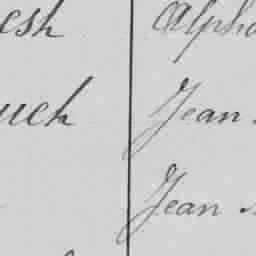 esh Alpho
uch Jean
Jean